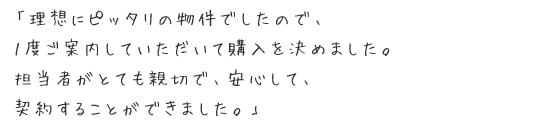 「理想にピッタリの物件でしたので、
1度ご案内していただいて購入を決めました。
担当者がとても親切で、安心して、
契約することができました。」